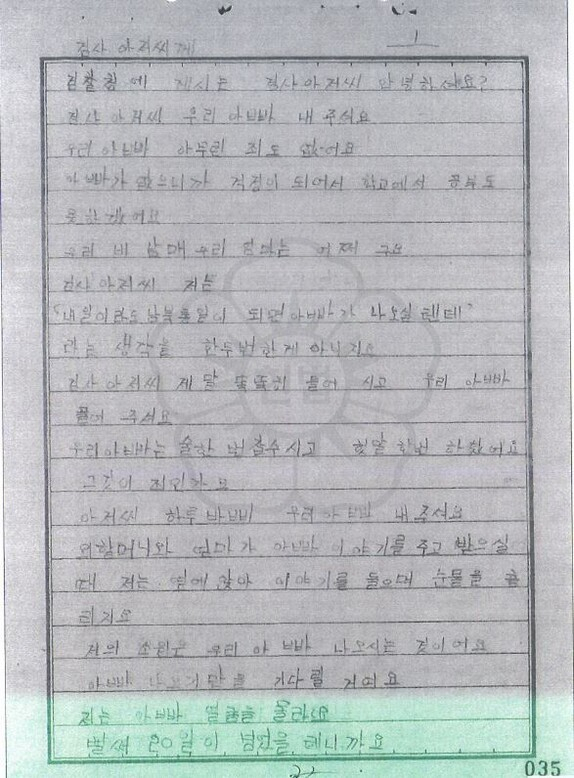 검사 아저씨께
1
검찰청에 계시는 검사아저씨 안녕하세요?
검사 아저씨 우리 아빠 내 주세요
우리 아빠 아무런 죄도 없어요
아빠가 없으니까 걱정이 되어서 학교에서 공부도
못하겠어요
우리 남매 우리 엄마는 어쩌구요
검사아저씨 저는
"내일이라도 남북통일이 되면 아빠가 나오실텐데"
라는 생각을 한두번한게 아니지요
검사 아저씨 제 말 똑똑히 들어 시고 우리 아빠
풀어 주세요
우리아빠는 술한 번 잡수시고 헛말 한번 하셨어요
그것이 죄인가요
아저씨 하루 바삐 우리 아빠 내 주세요
외할머니와 엄마가 아빠 이야기를 주고 받으실
때 저는 옆에 앉아 이야기를 들으며 눈물을 흘
리지요
저의 소원은 우리 아빠 나오시는 것이어요
아빠 나오기만을 기다릴 거예요
저는 아빠 얼굴을 몰라요
벌써 20일이 넘었을 테니까요
035